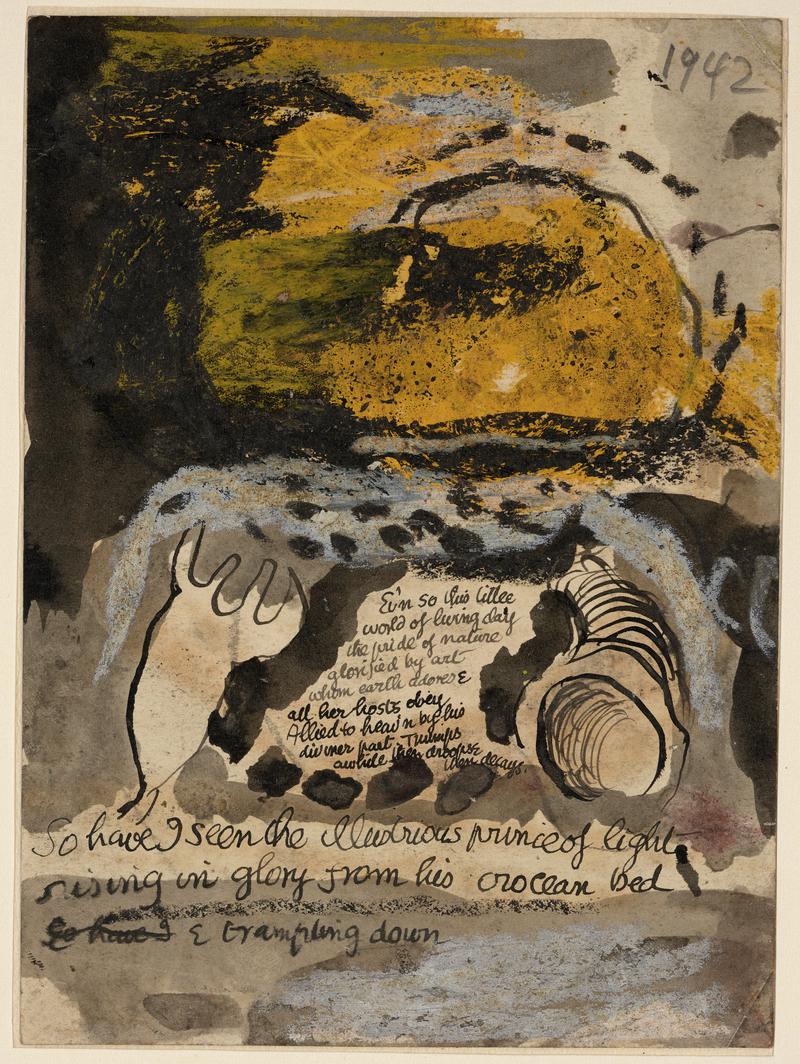 1942
Ev'n so this little
world of living day
the pride of nature
glorified by art
whom earth adores &
all her hosts obey
Allied to heav'n by his
diviner part. Triumps
awhile then droops &
then decays.
So have I seen the illustrious prince of light
rising in glory from his crocean bed
So have I & trampling down